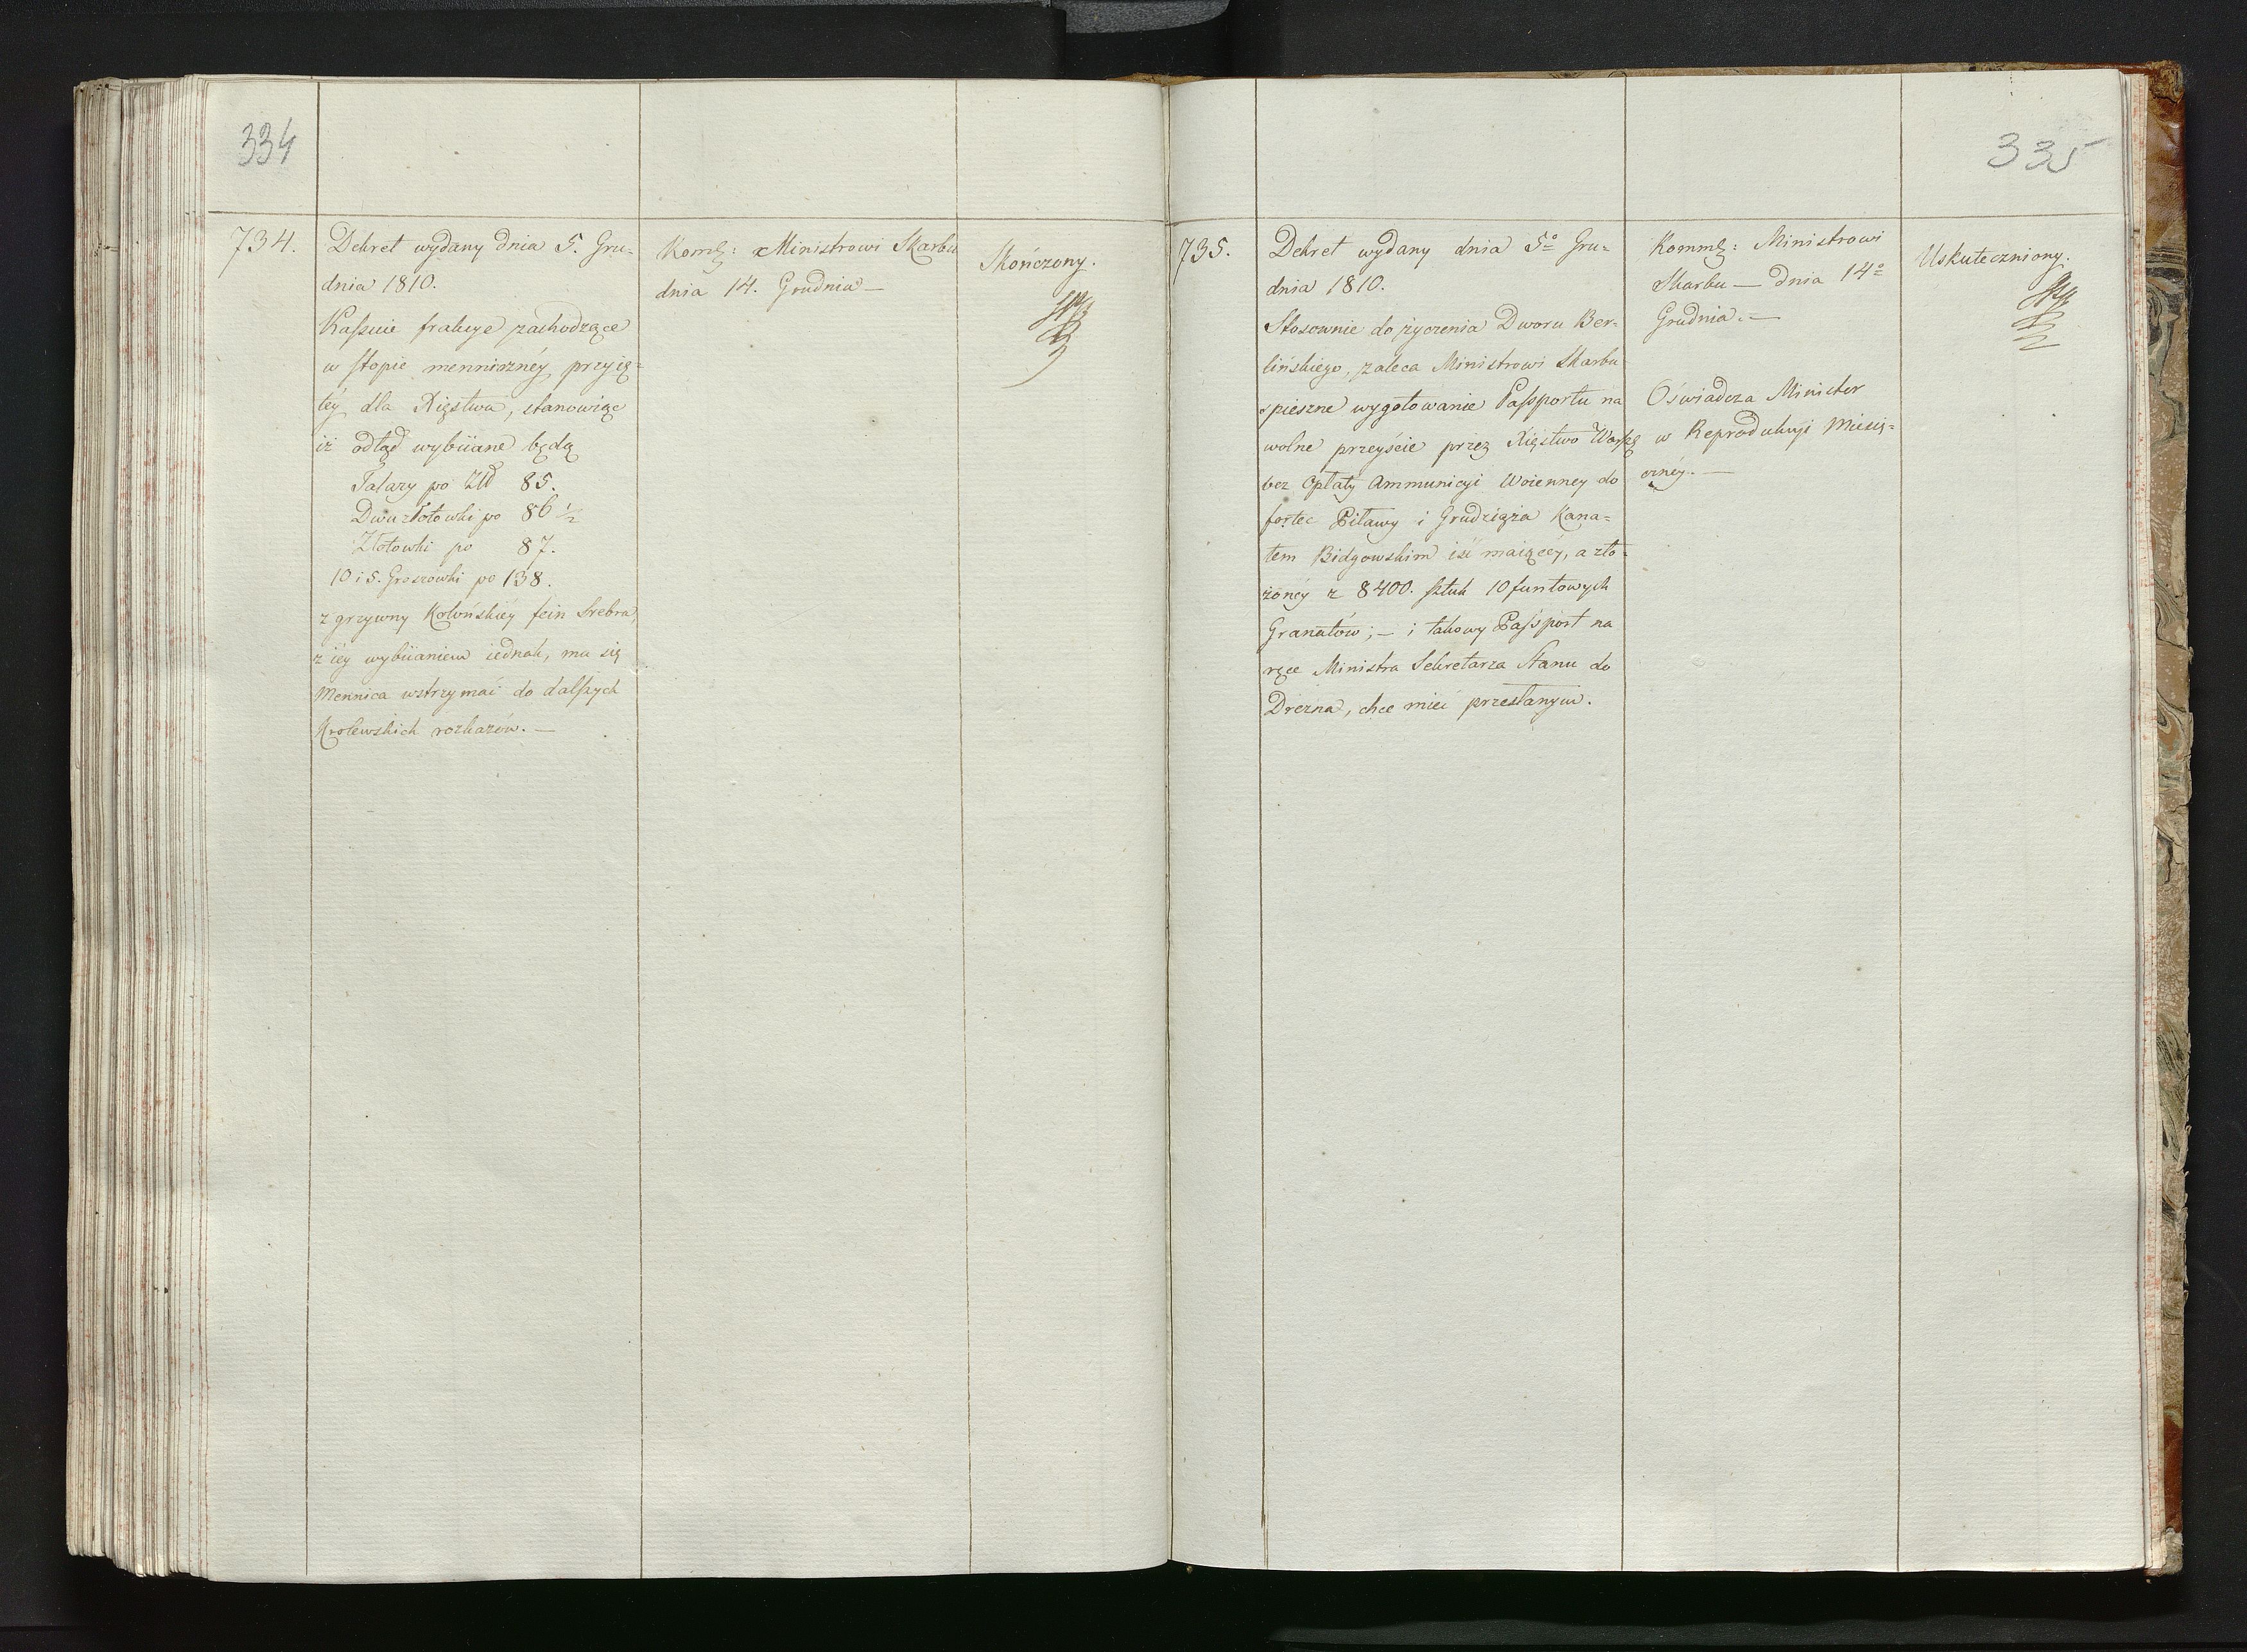 334
734.
Dekret wydany dnia 5. Gru-
dnia 1810.
Kassuie frakcye zachodzące
w stopie menniczney przyię-
tęy dla Xięstwa, stanowiąc
iż odtąd wybiiane będą
Talary po Złł 85.
Dwuzłotowki po 86 1/2
Złotowki po 87.
10 i 5. Groszowki po 138.
z grzywny Kolońskiéy fein Srebra,
z iéy wybiianiem iednak, ma się
Mennica wstrzymać do dalszych
Krolewskich rozkazów. —
Ministrowi Skarbu
dnia 14. Grudnia —
Skończony.
335
735.
Dekret wydany dnia 5º Gru-
dnia 1810.
Stosownie do życzenia Dworu Ber-
lińskiego, zaleca Ministrowi Skarbu
spieszne wygotowanie Passportu na
wolne przeyście przez Xięstwo Warsz
bez Opłaty Ammunicyi Woienney do
fortec Piławy i Grudziąża Kana-
łem Bidgowskim iść maiącéy, a zło-
żonéy z 8400. sztuk 10 funtowych
Granatów; — i takowy Passport na
ręce Ministra Sekretarza Stanu do
Drezna, chce mieć przesłanym.
Ministrowi
Skarbu — dnia 14º
Grudnia. —
Oświadcza Minister
w Reprodukcyi Miesię-
cznéy. —
Uskuteczniony.